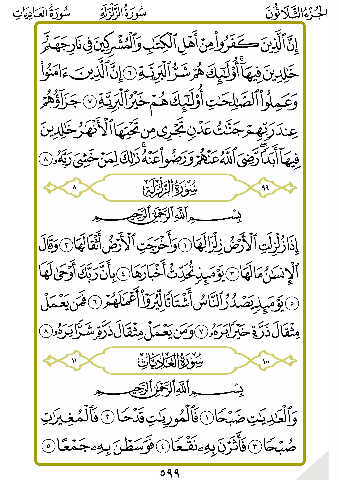 الجزء الثلاثون سورة الزلزلة سورة العاديات
إِنَّ الَّذِينَ كَفَرُوا مِنْ أَهْلِ الْكِتَابِ وَالْمُشْرِكِينَ فِي نَارِ جَهَنَّمَ
خَالِدِينَ فِيهَا أُولَٰئِكَ هُمْ شَرُّ الْبَرِيَّةِ ٦ إِنَّ الَّذِينَ ءَامَنُوا
وَعَمِلُوا الصَّالِحَاتِ أُولَٰئِكَ هُمْ خَيْرُ الْبَرِيَّةِ ٧ جَزَاؤُهُمْ
عِندَ رَبِّهِمْ جَنَّاتُ عَدْنٍ تَجْرِي مِن تَحْتِهَا الْأَنْهَارُ خَالِدِينَ
فِيهَا أَبَدًا رَّضِيَ اللَّهُ عَنْهُمْ وَرَضُوا عَنْهُ ذَٰلِكَ لِمَنْ خَشِيَ رَبَّهُ ٨
٩٩ سُورَةُ الزَّلْزَلَةِ ٨
بِسْمِ اللَّهِ الرَّحْمَٰنِ الرَّحِيمِ
إِذَا زُلْزِلَتِ الْأَرْضُ زِلْزَالَهَا ١ وَأَخْرَجَتِ الْأَرْضُ أَثْقَالَهَا ٢ وَقَالَ
الْإِنسَٰنُ مَا لَهَا ٣ يَوْمَئِذٍ تُحَدِّثُ أَخْبَارَهَا ٤ بِأَنَّ رَبَّكَ أَوْحَىٰ لَهَا
٥ يَوْمَئِذٍ يَصْدُرُ النَّاسُ أَشْتَاتًا لِّيُرَوْا أَعْمَٰلَهُمْ ٦ فَمَن يَعْمَلْ
مِثْقَالَ ذَرَّةٍ خَيْرًا يَرَهُ ٧ وَمَن يَعْمَلْ مِثْقَالَ ذَرَّةٍ شَرًّا يَرَهُ ٨
١٠٠ سُورَةُ الْعَادِيَاتِ ١١
بِسْمِ اللَّهِ الرَّحْمَٰنِ الرَّحِيمِ
وَالْعَٰدِيَٰتِ ضَبْحًا ١ فَالْمُورِيَٰتِ قَدْحًا ٢ فَالْمُغِيرَٰتِ
صُبْحًا ٣ فَأَثَرْنَ بِهِ نَقْعًا ٤ فَوَسَطْنَ بِهِ جَمْعًا ٥
٥٩٩